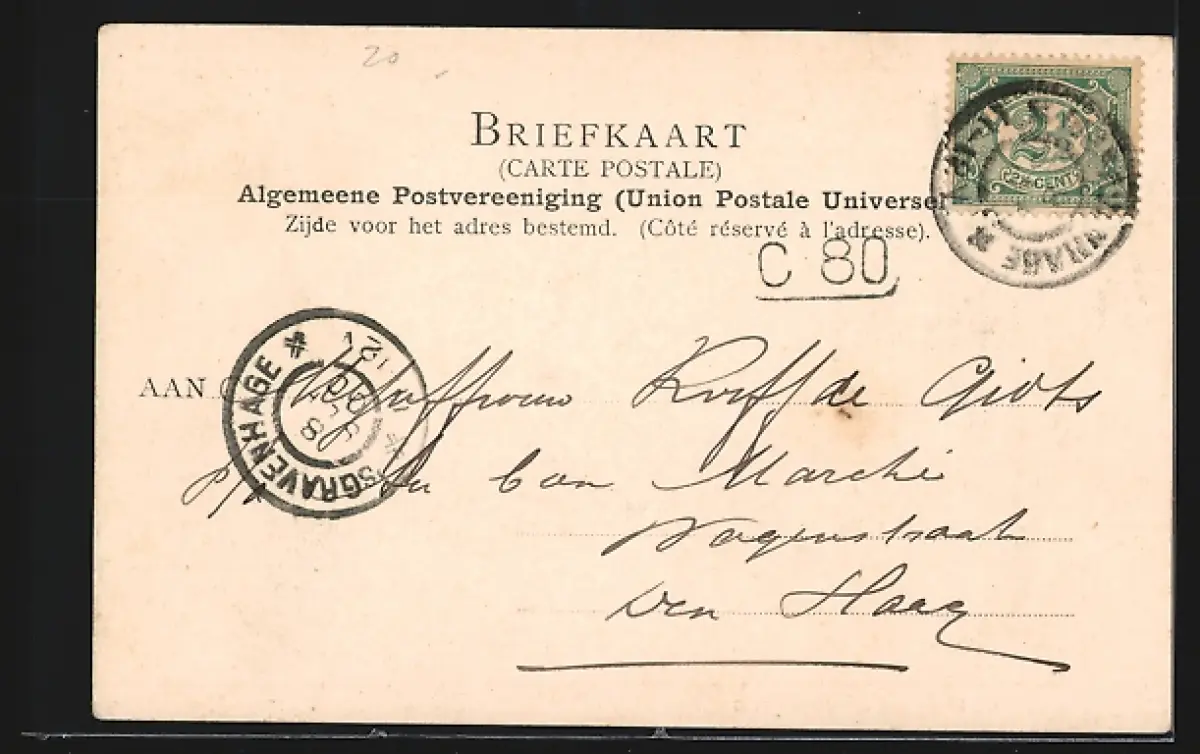 20
BRIEFKAART
(CARTE POSTALE)
Algemeene Postvereeniging (Union Postale Universel
Zijde voor het adres bestemd. (Côté réservé à l'adresse).
2½
2½ CENT
C 80
'SGRAVENHAGE
AAN
Mejuffrouw de
p/a Au Bon Marché
Wagenstraat
Den Haag